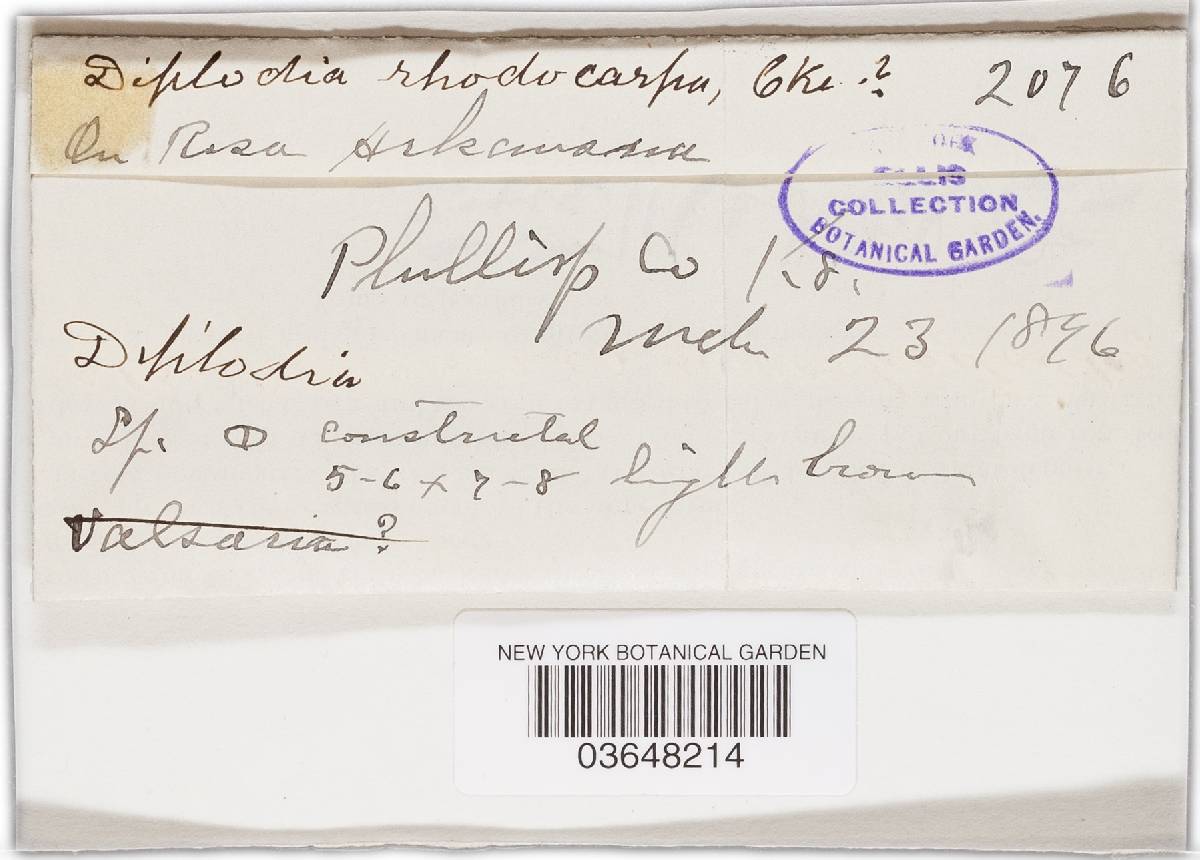 Diplodia rhodocarpa, Cke.? 2076
On Rosa Arkansana
OF
ELLIS
COLLECTION
BOTANICAL GARDEN.
Phillip Co Ks.
Mch 23 1896
Diplodia
Sp. constricted
5-6 x 7-8 light brown
Valsaria ?
NEW YORK BOTANICAL GARDEN
03648214